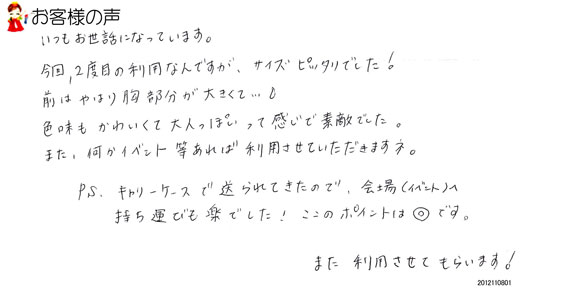 お客様の声
いつもお世話になっています。
今回、2度目の利用なんですが、サイズピッタリでした！
前はやはり胸部分が大きくて…♪
色味もかわいくて大人っぽいって感じで素敵でした。
また、何かイベント等あれば利用させていただきますネ。
P.S. キャリーケースで送られてきたので、会場(イベント)へ
持ち運びも楽でした！ここのポイントは◎です。
また利用させてもらいます！
2012110801